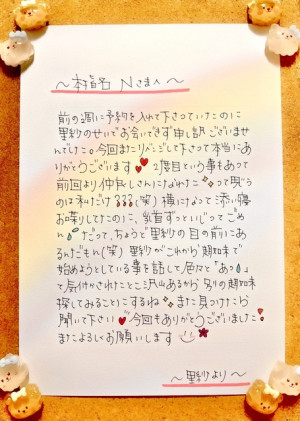 ～本指名 Nさまへ～
前の週に予約を入れて下さっていたのに
里紗のせいでお会いできず申し訳ございませ
んでした。今回またリベンジして下さって本当にあ
りがとうございます 2度目という事もあって
前回より仲良しさんになれた って思う
のは私だけ???(笑) 横になって添い寝
お喋りしてたのに、ずっといじってごめ
ん だって、ちょうど里紗の目の前にあ
るんだもん(笑) 里紗がこれから趣味で
始めようとしている事を話して色々と"あ"
て気付かされたこと沢山あるから 別の趣味
探してみることにするね また見つけたら
聞いて下さい 今回もありがとうございました
またよろしくお願いします
～里紗より～